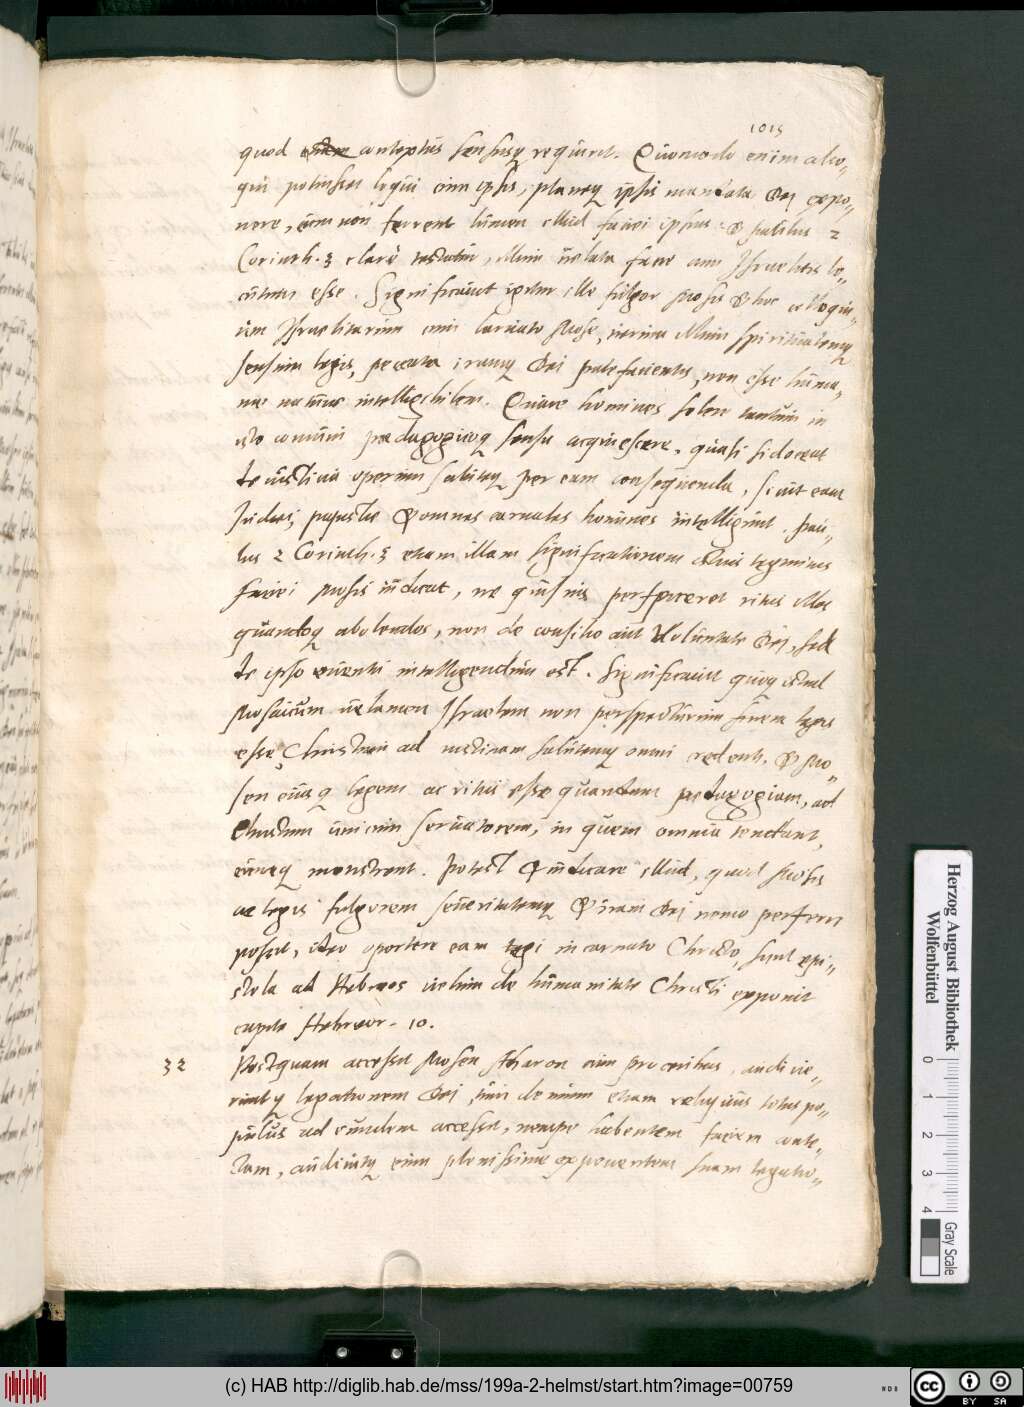 1015
quod contextus sensusq requirit. Quomodo enim alio„
qui potuisset loqui cum ipsis, planeq ipsis mandata Dei expo„
nere, cum non ferrent lumen illud faciei ipsius & Paulus 2
Corinth. 3 clarè testatur, illum uelata facie cum Israelitis lo„
cutum esse. Significauit igitur ille fulgor Mosis & hoc colloqui„
um Israelitarum cum laruato Mose, uerum illum spiritualemq
sensum legis, peccata iramq Dei patefacientis, non esse huma„
nae naturae intelligibilem. Quare homines solere tantum in
isto communi paedagogicoq sensu acquiescere, quasi si doceat
de iustitia operum salutem per eam consequenda, sicut eam
Iudaei, papistae & omnes carnales homines intelligunt. Pau„
lus 2 Corinth. 3 etiam illam significationem istius tegminis
faciei Mosis indicat, ne quisuis perspiceret ritus illos
quandoq abolendos, non de consilio aut Voluntate Dei, sed
de ipso euentu intelligendum est. Significauit quoq istud
Mosaicum uelamen Israelem non perspecturum finem legis
esse Christum ad iustitiam salutemq omni credenti, & Mo„
sen eiusq legem ac ritus esse quandam paedagogiam, ad
Christum unicum seruatorem, in quem omnia tendant,
eumq monstrent. Potest & indicare illud, quod Mosis
ac legis fulgorem seueritatemq & iram Dei nemo perferre
possit, ideo oportere eam tegi incarnato Christo, sicut epi„
stola ad Hebraeos uelum de humanitate Christi exponit
capite Hebraeor. 10.
32 Postquam accessit Mosen Aharon cum proceribus, audiue„
runtq legationem Dei, tum demum etiam reliquus totus po„
pulus ad eundem accessit, nempe habentem faciem conte„
ctam, audiuitq eum plenissime exponentem suam legatio„
Herzog August Bibliothek
Wolfenbüttel
0 1 2 3 4
Gray Scale
(c) HAB http://diglib.hab.de/mss/199a-2-helmst/start.htm?image=00759
cc BY SA